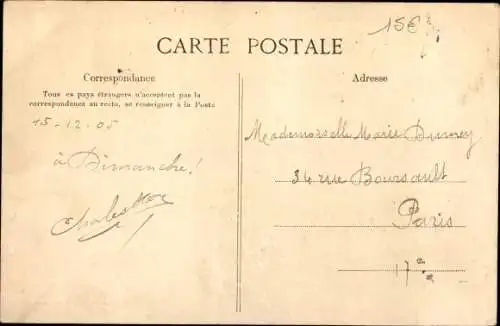 15€
CARTE POSTALE
Correspondance
Tous les pays étrangers n'acceptent pas la
correspondance au recto, se renseigner à la Poste
15-12-05
à Dimanche!
Adresse
Mademoiselle Marie
34 rue Boursault
Paris
17e